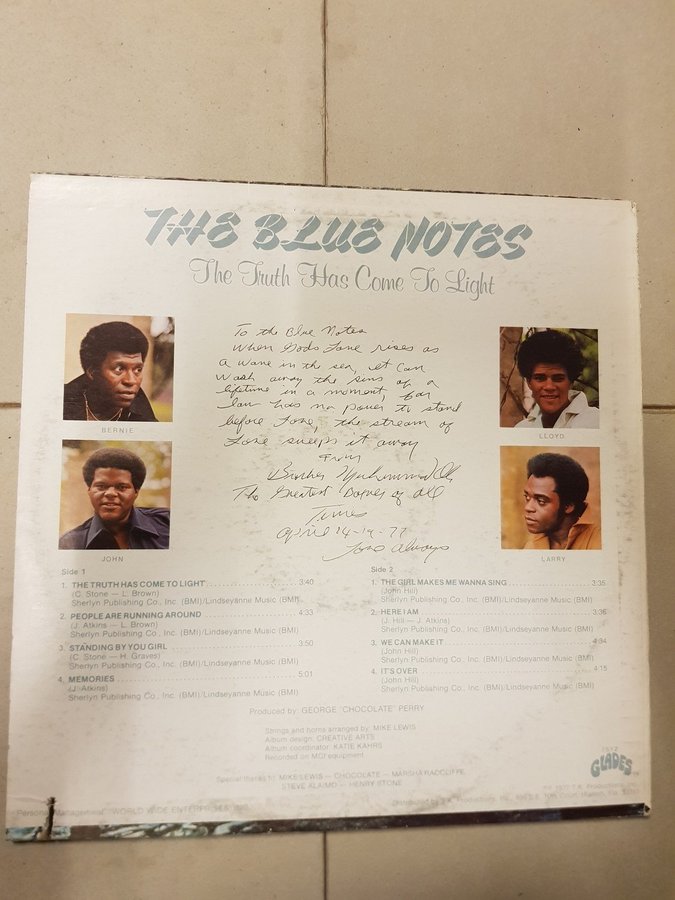 THE BLUE NOTES
The Truth Has Come To Light
To the Blue Notes
When Gods Love rises as
a wave in the sea, it can
Wash away the sins of a
lifetime in a moment, for
law has no power to stand
before Love, the stream of
Love sweeps it away
From
Brother Muhammad Ali
The Greatest Boxer of all
Times
April 14-19-77
Love always
BERNIE
LLOYD
JOHN
LARRY
Side 1
1. THE TRUTH HAS COME TO LIGHT 3:40
(C. Stone — L. Brown)
Sherlyn Publishing Co., Inc. (BMI)/Lindseyanne Music (BMI)
2. PEOPLE ARE RUNNING AROUND 4:33
(J. Atkins — L. Brown)
Sherlyn Publishing Co., Inc. (BMI)/Lindseyanne Music (BMI)
3. STANDING BY YOU GIRL 3:50
(C. Stone — H. Graves)
Sherlyn Publishing Co., Inc. (BMI)/Lindseyanne Music (BMI)
4. MEMORIES 5:01
(J. Atkins)
Sherlyn Publishing Co., Inc. (BMI)/Lindseyanne Music (BMI)
Side 2
1. THE GIRL MAKES ME WANNA SING 3:35
(John Hill)
Sherlyn Publishing Co., Inc. (BMI)/Lindseyanne Music (BMI)
2. HERE I AM 3:36
(J. Hill — J. Atkins)
Sherlyn Publishing Co., Inc. (BMI)/Lindseyanne Music (BMI)
3. WE CAN MAKE IT 4:34
(John Hill)
Sherlyn Publishing Co., Inc. (BMI)/Lindseyanne Music (BMI)
4. IT'S OVER 4:15
(John Hill)
Sherlyn Publishing Co., Inc. (BMI)/Lindseyanne Music (BMI)
Produced by: GEORGE "CHOCOLATE" PERRY
Strings and horns arranged by: MIKE LEWIS
Album design: CREATIVE ARTS
Album coordinator: KATIE KAHRS
Recorded on MCI equipment
Special thanks to: MIKE LEWIS — CHOCOLATE — MARSHA RADCLIFFE
STEVE ALAIMO — HENRY STONE
7512
GLADES
1977 T.K. Productions
Personal Management: WORLD WIDE ENTERPRISES, INC.
Distributed by T.K. Productions, Inc., 10th Court, Hialeah, Fla.